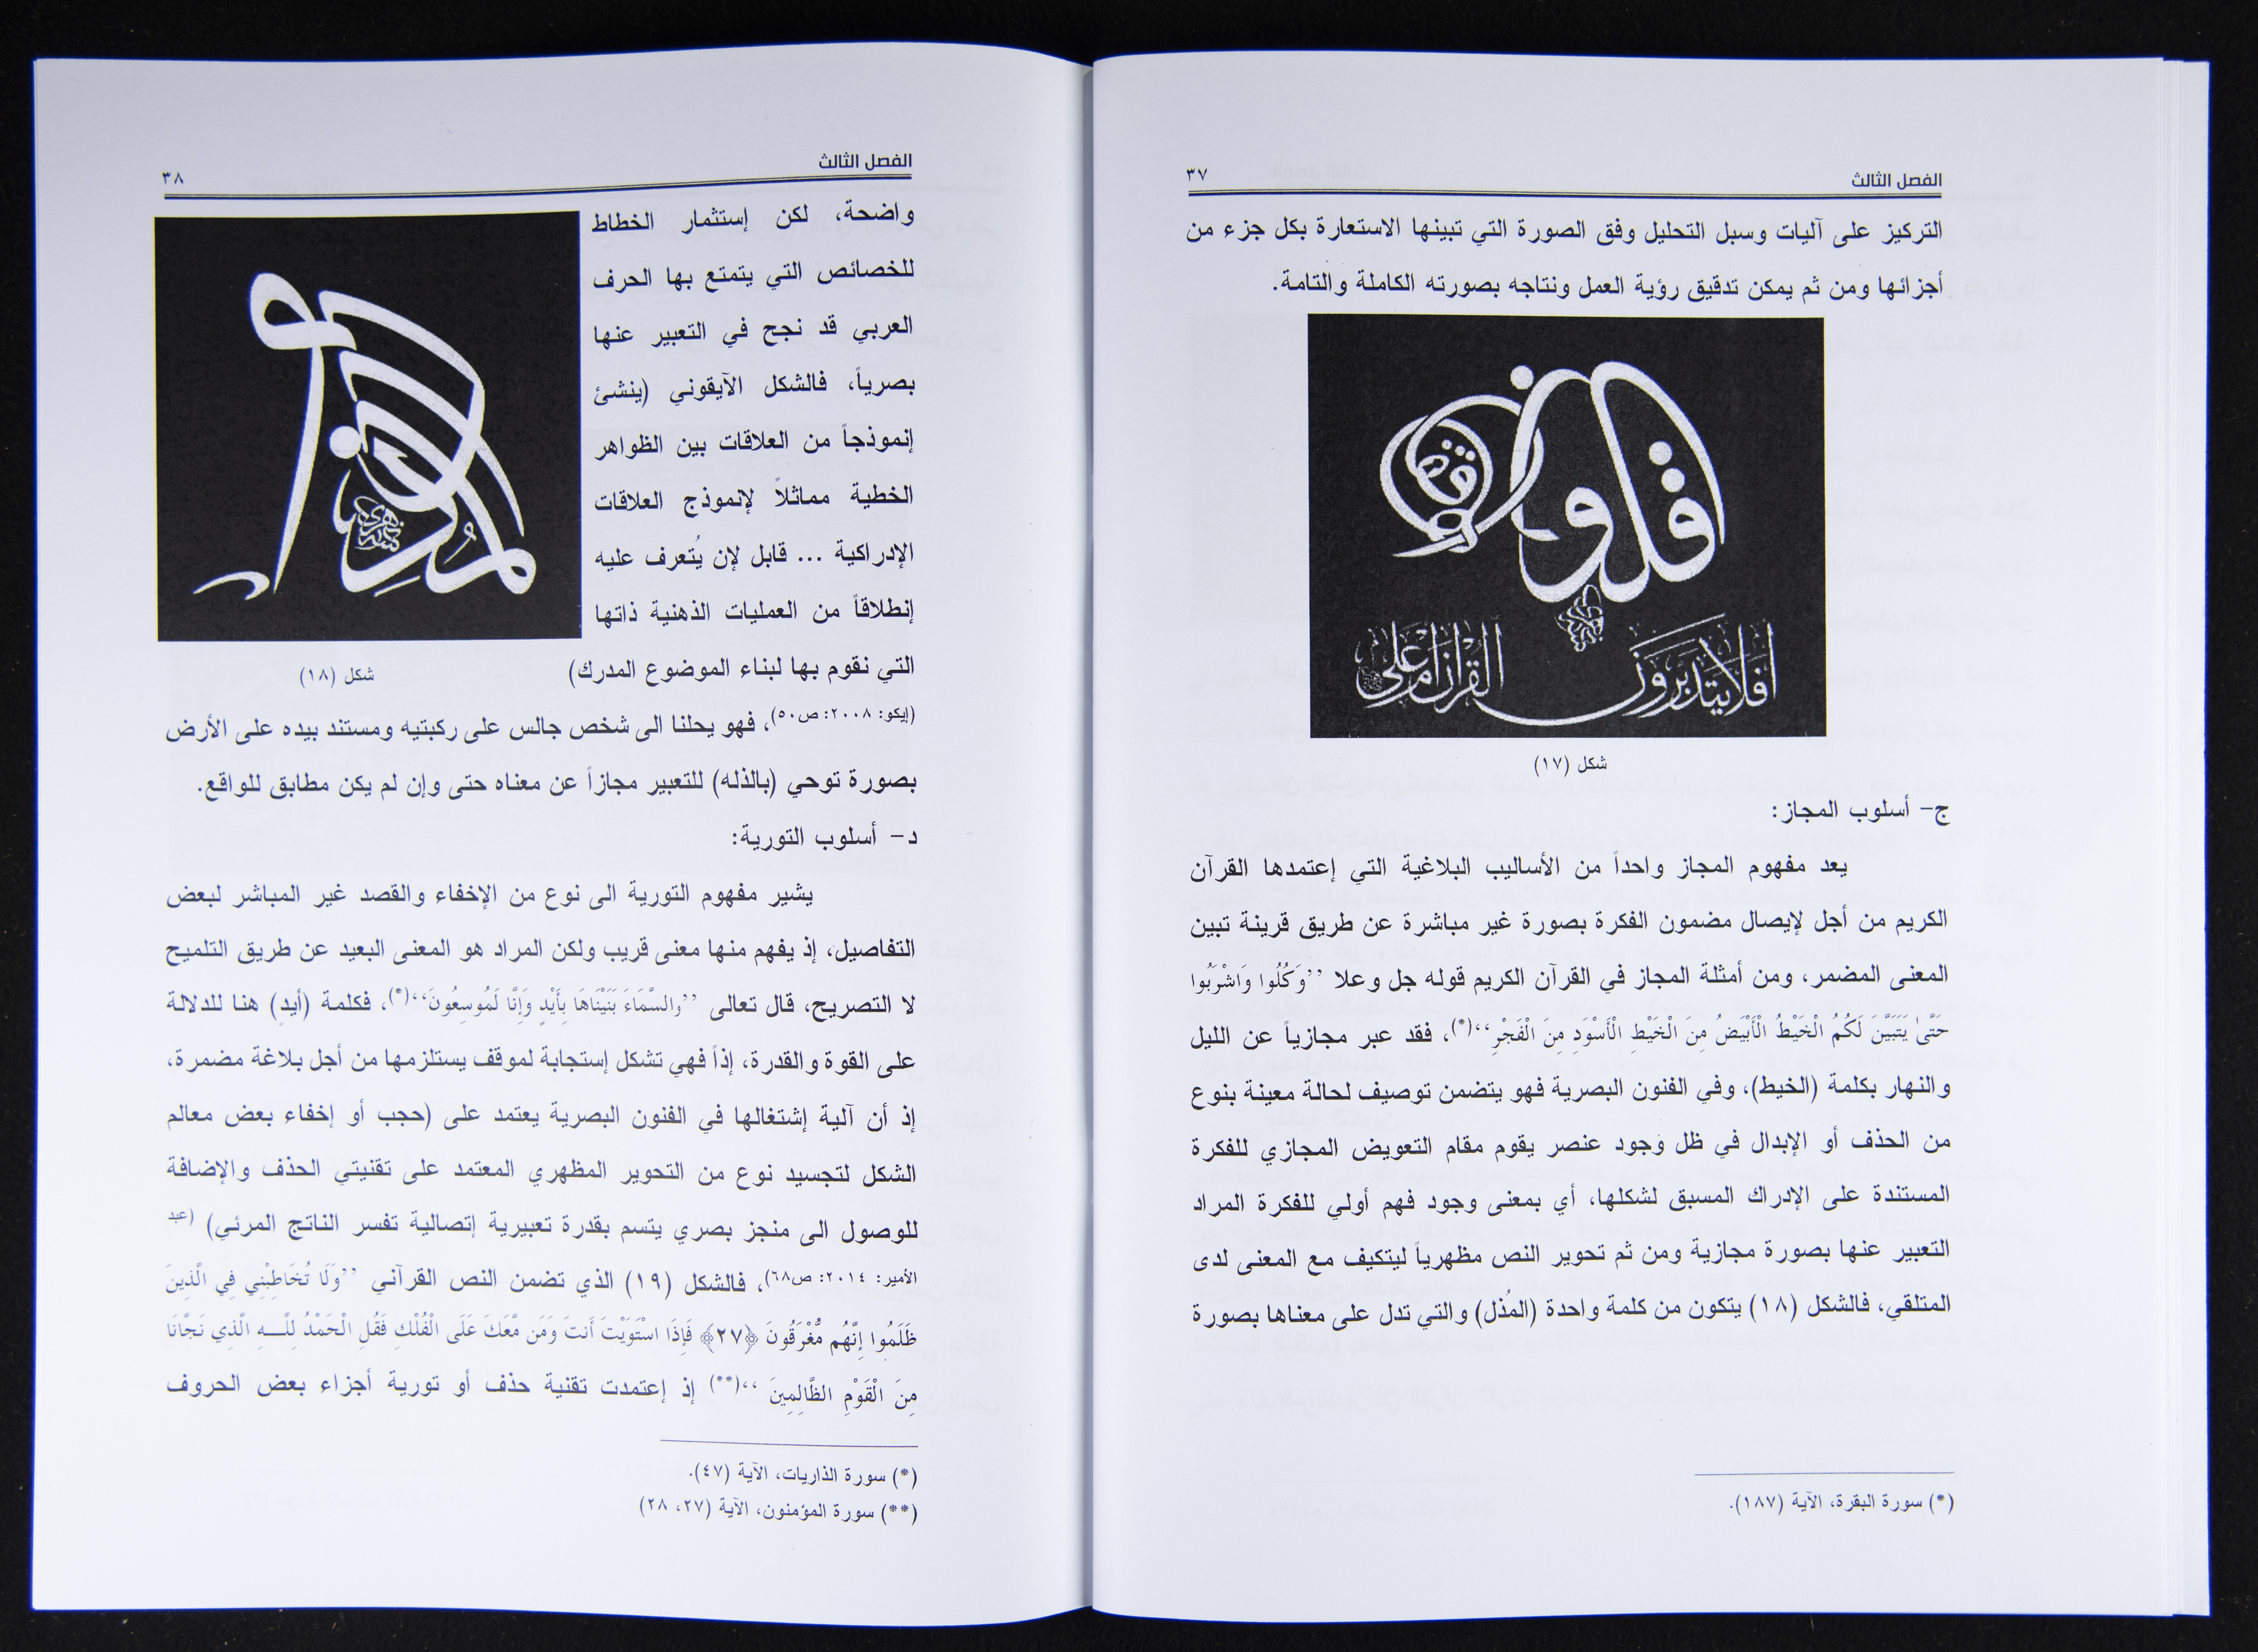 الفصل الثالث
٣٧
التركيز على آليات وسبل التحليل وفق الصورة التي تبينها الاستعارة بكل جزء من
أجزائها ومن ثم يمكن تدقيق رؤية العمل ونتاجه بصورته الكاملة والتامة.
افلا يتدبرون القران ام على
قلوب
اقفالها
شكل (١٧)
ج- أسلوب المجاز:
يعد مفهوم المجاز واحداً من الأساليب البلاغية التي إعتمدها القرآن
الكريم من أجل لإيصال مضمون الفكرة بصورة غير مباشرة عن طريق قرينة تبين
المعنى المضمر، ومن أمثلة المجاز في القرآن الكريم قوله جل وعلا ’’وَكُلُوا وَاشْرَبُوا
حَتَّىٰ يَتَبَيَّنَ لَكُمُ الْخَيْطُ الْأَبْيَضُ مِنَ الْخَيْطِ الْأَسْوَدِ مِنَ الْفَجْرِ‘‘(*)، فقد عبر مجازياً عن الليل
والنهار بكلمة (الخيط)، وفي الفنون البصرية فهو يتضمن توصيف لحالة معينة بنوع
من الحذف أو الإبدال في ظل وجود عنصر يقوم مقام التعويض المجازي للفكرة
المستندة على الإدراك المسبق لشكلها، أي بمعنى وجود فهم أولي للفكرة المراد
التعبير عنها بصورة مجازية ومن ثم تحوير النص مظهرياً ليتكيف مع المعنى لدى
المتلقي، فالشكل (١٨) يتكون من كلمة واحدة (المُذل) والتي تدل على معناها بصورة
(*) سورة البقرة، الآية (١٨٧).
الفصل الثالث
٣٨
واضحة، لكن إستثمار الخطاط
للخصائص التي يتمتع بها الحرف
العربي قد نجح في التعبير عنها
بصرياً، فالشكل الآيقوني (ينشئ
إنموذجاً من العلاقات بين الظواهر
الخطية مماثلاً لإنموذج العلاقات
الإدراكية ... قابل لإن يُتعرف عليه
إنطلاقاً من العمليات الذهنية ذاتها
التي نقوم بها لبناء الموضوع المدرك)
شكل (١٨)
(إيكو: ٢٠٠٨: ص٥٠)، فهو يحلنا الى شخص جالس على ركبتيه ومستند بيده على الأرض
بصورة توحي (بالذله) للتعبير مجازاً عن معناه حتى وإن لم يكن مطابق للواقع.
د- أسلوب التورية:
يشير مفهوم التورية الى نوع من الإخفاء والقصد غير المباشر لبعض
التفاصيل، إذ يفهم منها معنى قريب ولكن المراد هو المعنى البعيد عن طريق التلميح
لا التصريح، قال تعالى ’’والسَّمَاءَ بَنَيْنَاهَا بِأَيْدٍ وَإِنَّا لَمُوسِعُونَ‘‘(*)، فكلمة (أيدٍ) هنا للدلالة
على القوة والقدرة، إذاً فهي تشكل إستجابة لموقف يستلزمها من أجل بلاغة مضمرة،
إذ أن آلية إشتغالها في الفنون البصرية يعتمد على (حجب أو إخفاء بعض معالم
الشكل لتجسيد نوع من التحوير المظهري المعتمد على تقنيتي الحذف والإضافة
للوصول الى منجز بصري يتسم بقدرة تعبيرية إتصالية تفسر الناتج المرئي) (عبد
الأمير: ٢٠١٤: ص٦٨)، فالشكل (١٩) الذي تضمن النص القرآني ’’وَلَا تُخَاطِبْنِي فِي الَّذِينَ
ظَلَمُوا إِنَّهُم مُّغْرَقُونَ ﴿٢٧﴾ فَإِذَا اسْتَوَيْتَ أَنتَ وَمَن مَّعَكَ عَلَى الْفُلْكِ فَقُلِ الْحَمْدُ لِلَّـهِ الَّذِي نَجَّانَا
مِنَ الْقَوْمِ الظَّالِمِينَ‘‘(**) إذ إعتمدت تقنية حذف أو تورية أجزاء بعض الحروف
(*) سورة الذاريات، الآية (٤٧).
(**) سورة المؤمنون، الآية (٢٧، ٢٨)